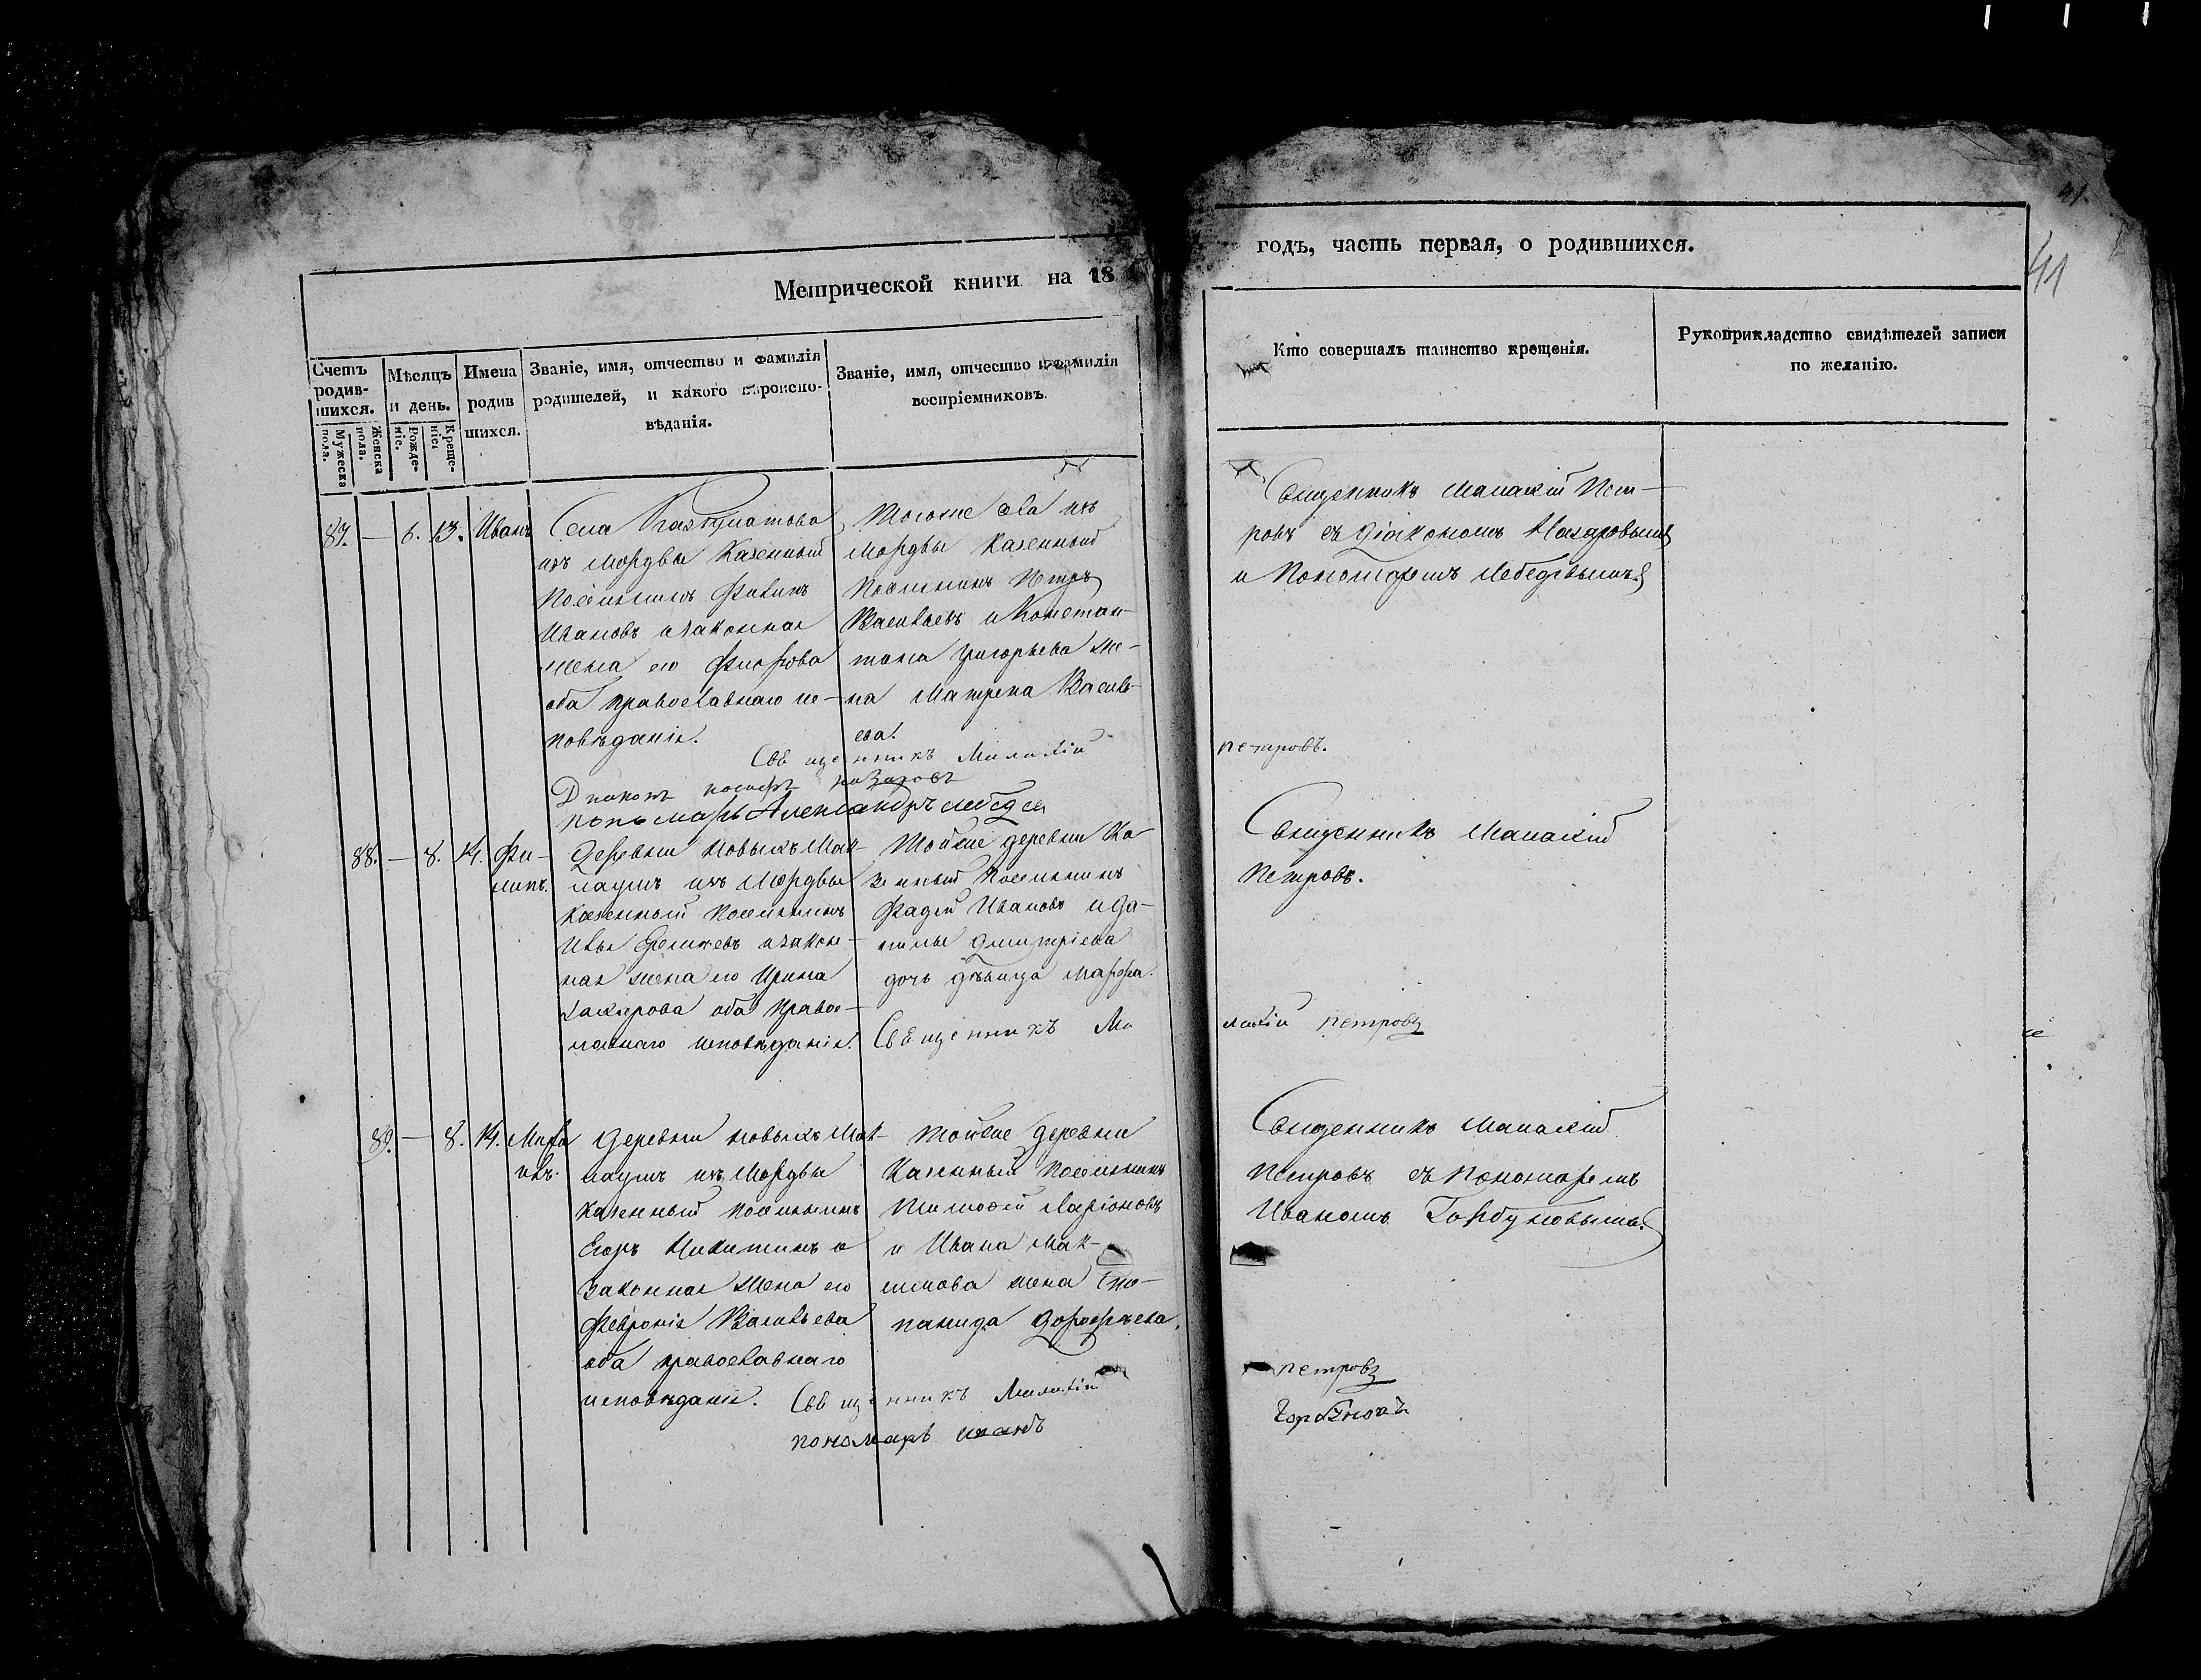 41.
41
Метрической книги на 18
годъ, часть первая, о родившихся.
Счетъ родив-шихся.
Мужеска пола.
Женска пола.
Мѣсяцъ и день.
Рожде-ніе.
Креще-ніе.
Имена родив шихся.
Званіе, имя, отчество и фамилія
родителей, и какого вѣроиспо-
вѣданія.
Званіе, имя, отчество и фамилія
воспріемниковъ.
Кто совершалъ таинство крещенія.
Рукоприкладство свидѣтелей записи
по желанію.
87. — 6. 13. Иванъ
Села
изъ Мордвы Казенный
Поселянинъ Филипъ
Ивановъ и законная
жена его
оба православнаго ис-
повѣданія.
Тогоже села изъ
Мордвы Казенный
Поселянинъ Петръ
Васильевъ и Констан-
тина Григорьева же-
на Матрена Василь-
ева.
Священникъ
ровъ съ Діакономъ Назаровымъ
и Пономаремъ Лебедевымъ.
Священникъ
петровъ.
Диаконъ иосифъ назаровъ
пономарь Александръ лебедев
88. — 8. 14. Фи-
липъ.
Деревни Новыхъ Мак-
лаушъ изъ Мордвы
Казенный Поселянинъ
и закон-
ная жена его Ирина
Захарова оба Правос-
лавнаго исповѣданія.
Тойже деревни Ка-
зенный Поселянинъ
Фадей Ивановъ и Да-
нилы Дмитріева
дочь дѣвица Марфа.
Священникъ
Петровъ.
Священникъ
петровъ
89. — 8. 14. Миха
илъ.
Деревни новыхъ Мак-
лаушъ изъ Мордвы
Казенный Поселянинъ
Егоръ Никитинъ и
Законная жена его
Февронія Васильева
оба православнаго
исповѣданія.
Тойже деревни
Казенный Поселянинъ
Тимофей Ларіоновъ
и Ивана Мак-
симова жена Сте-
панида Дорофѣева.
Священникъ
Петровъ съ Пономаремъ
Иваномъ Горбуновымъ.
Священникъ
петровъ
пономарь иванъ
Горбуновъ